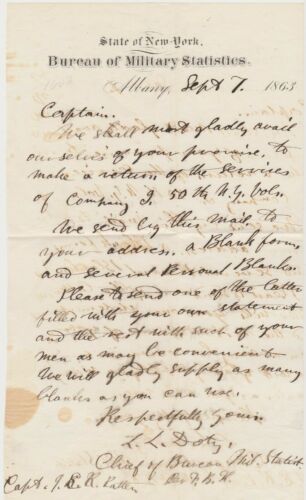 State of New-York,
Bureau of Military Statistics.
Albany, Sept 7. 1863
Captain.
We shall most gladly avail
ourselves of your promise, to
make a return of the services
of Company I. 50th N.Y. Vols.
We send by this mail, to
your address, a Blank form
and several Personal Blanks.
Please to send one of the latter
filled with your own statement
and the rest with such of your
men as may be convenient.
We will gladly supply as many
blanks as you can use.
Respectfully yours
L. L. Doty,
Chief of Bureau Mil. Statist.
Capt. J. E. R. Patten